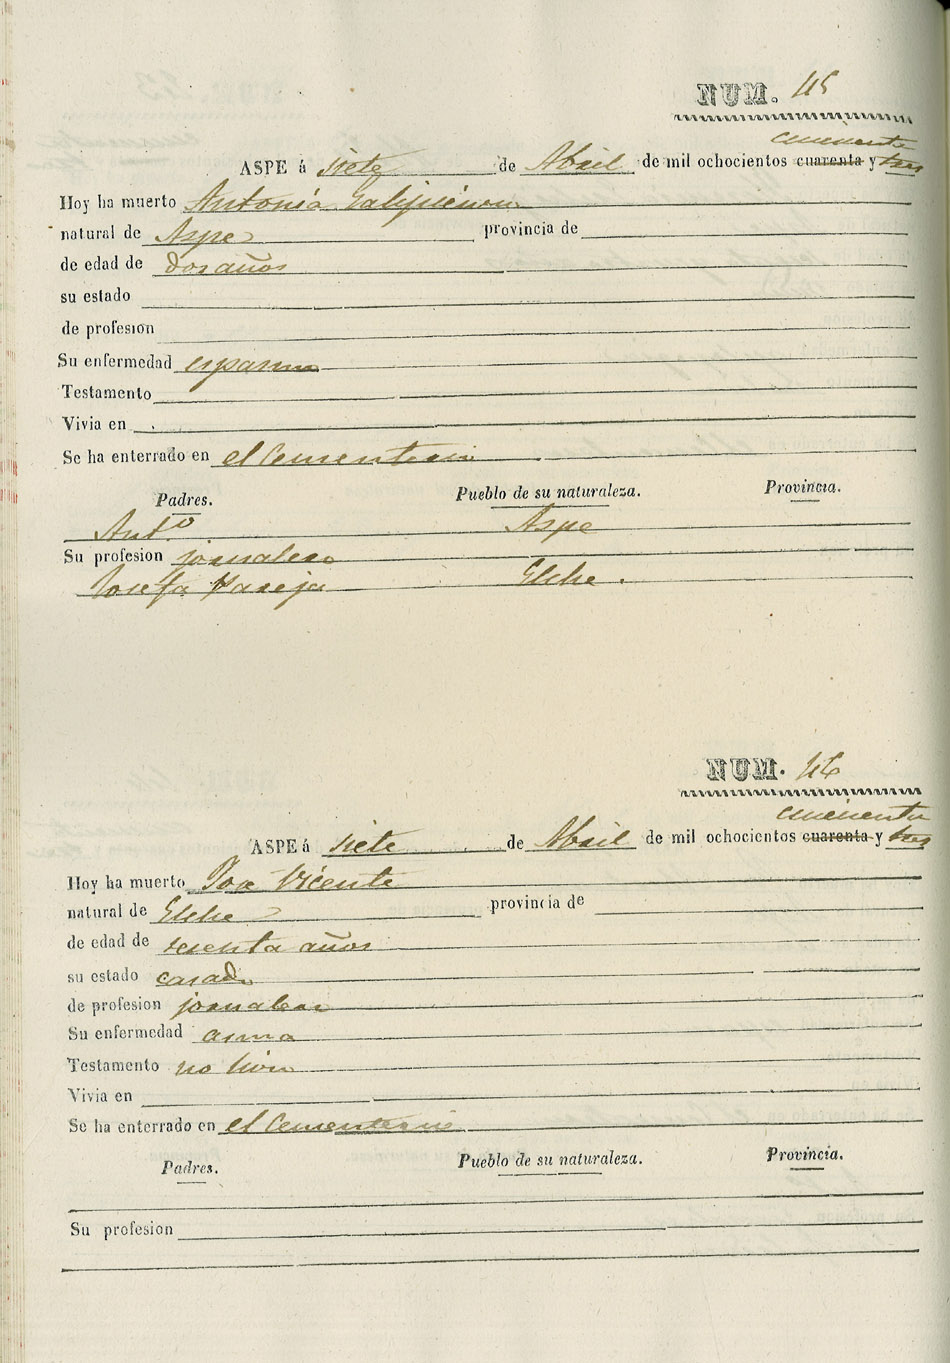 NUM. 45
cincuenta
ASPE á siete de Abril de mil ochocientos cuarenta y tres
Hoy ha muerto Antonia Galipienso
natural de Aspe provincia de
de edad de dos años
su estado
de profesion
Su enfermedad espasmo
Testamento
Vivia en
Se ha enterrado en el Cementerio
Padres. Pueblo de su naturaleza. Provincia.
Antº Aspe
Su profesion jornalero
Josefa Pareja Elche.
NUM. 46
cincuenta
ASPE á siete de Abril de mil ochocientos cuarenta y tres
Hoy ha muerto Jose Vicente
natural de Elche provincia de
de edad de sesenta años
su estado casado
de profesion jornalero
Su enfermedad asma
Testamento no
Vivia en
Se ha enterrado en el Cementerio
Padres. Pueblo de su naturaleza. Provincia.
Su profesion